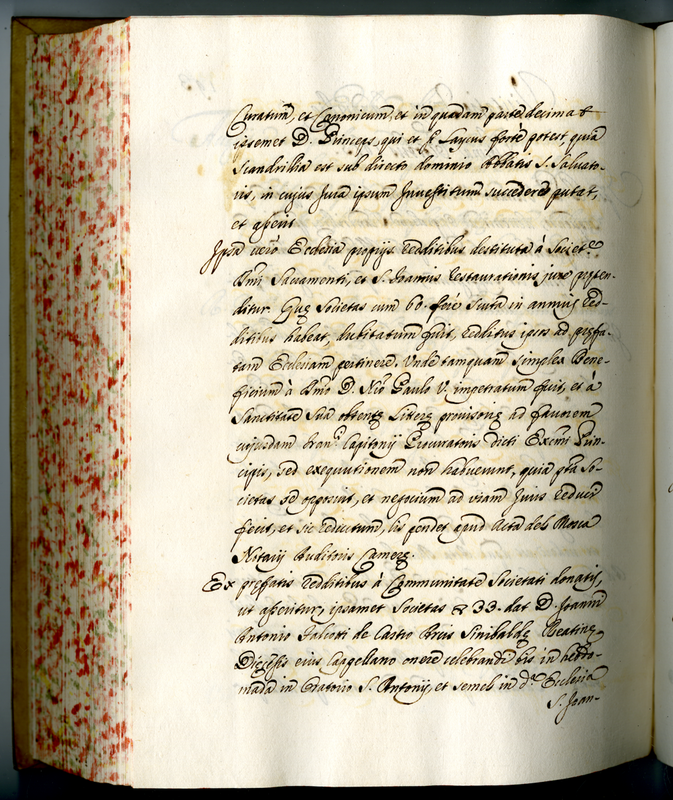 Curatum, et Canonicum, et in quadam parte decima è
ipsemet D. Princeps, qui et si Laycus forte potest, quia
Scandrilia est sub directo dominio Abbatis S. Salvato-
ris, in cujus Jura ipsum Investitum succedere putat,
et asserit
Ipsa verò Ecclesia proprijs redditibus destituta à Societ.e
Smi Sacramenti, et S. Joannis restaurationis jure preten-
ditur. Quę Societas cum 60. ferè scuta in annuis red-
ditibus habeat, dubitatum fuit, redditus ipsos ad pręfa-
tam Ecclesiam pertinere. Unde tamquam simplex Bene-
ficium à Smo D. Nro Paulo V. impetratum fuit, et à
Sanctitate Sua obtentę Literę provisorię ad favorem
cujusdam Capitonij Procuratoris dicti Excmi Prin-
cipis, sed exequutionem non habuerunt, quia pta So-
cietas se opposuit, et negocium ad viam Juris reduci
fecit, et sic reductum, lis pendet apud Acta de Mora
Notarij Auditoris Camerę.
Ex prefatis redditibus à Communitate Societati donatis,
ut asseritur, ipsamet Societas 33. dat D. Joanni
Antonio de Castro Sinibaldę Reatinę
Diocesis eius Cappellano onere celebrandi bis in hebdo-
mada in Oratorio S. Antonij, et semel in d.a Ecclesia
S. Joan-